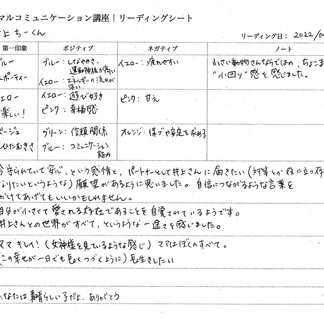 マルコミュニケーション講座 | リーディングシート
上 ちーくん
リーディング日: 2022/0
第一印象 ポジティブ ネガティブ ノート
ブルー ブルー: しなやかさ、 イエロー: 疲れやすい 小さい動物さんならではの、ちょこま
スポーティー 運動神経が高い "小回り"感を感じました。
イエロー: エネルギーの
イエロー イエロー: 遊び好き ピンク: 甘え
楽しい! ピンク: 幸福感
ベージュ グリーン: 信頼関係 オレンジ: 保護や安定を求める
ひたむきさ ブルー: コミュニケーション
能力
守られていて安心、という感情と、パートナーとして井上さんに届きたい(対等とか役に立つ存
なりたいというような)願望があるように思いました。自信につながるような言葉を
かけてあげてもいいかもしれません。
自分が小さくて愛される存在であることを自覚されているようです。
井上さんとの世界がすべて、というような一途さを感じました。
ママ キレイ!(女神様を見ているような感じ) ママはぼくのすべて。
この幸せが一日でも長くつづくように) 長生きしたい
あなたは素晴らしい子だよ。ありがとう